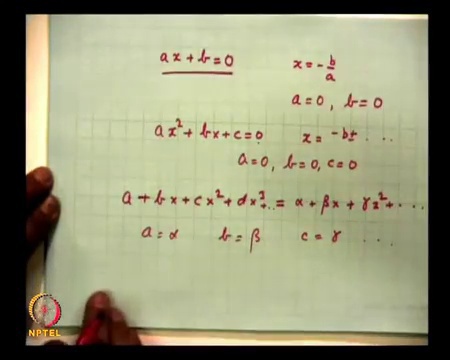 ax + b = 0 x = - b/a
a = 0 , b = 0
ax² + bx + c = 0 x = -b± ...
a = 0, b = 0, c = 0
a + bx + cx² + dx³ + .. = α + βx + γx² + ....
a = α b = β c = γ ...
NPTEL